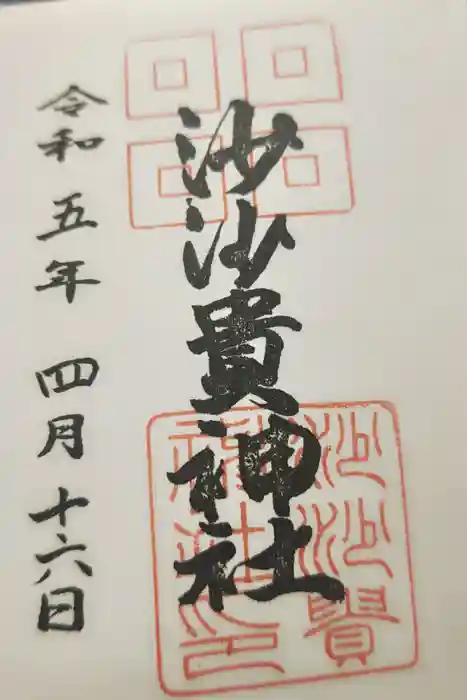 沙沙貴神社
令和五年 四月十六日
沙沙貴
神社之印